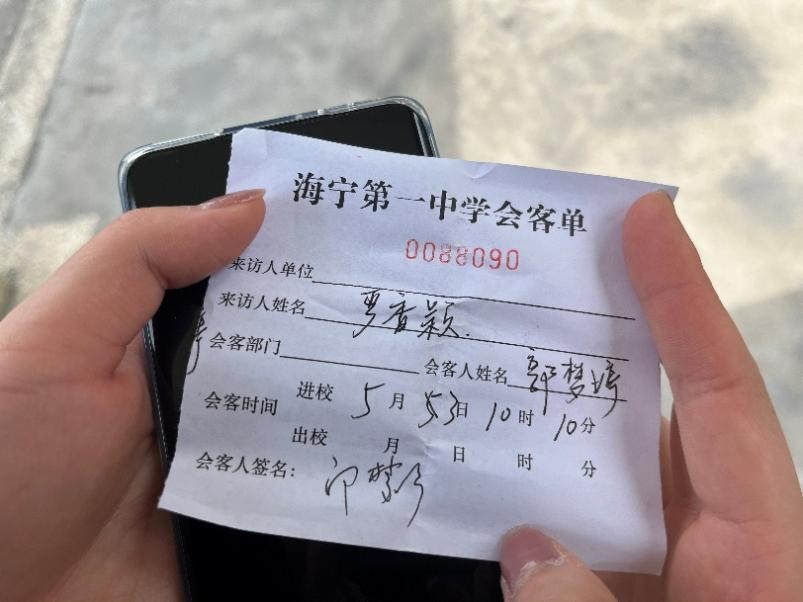 海宁第一中学会客单
0088090
来访人单位
来访人姓名 贾香颖
会客部门 会客人姓名 郭梦婷
会客时间 进校 5月 53日 10时 10分
出校 月 日 时 分
会客人签名: